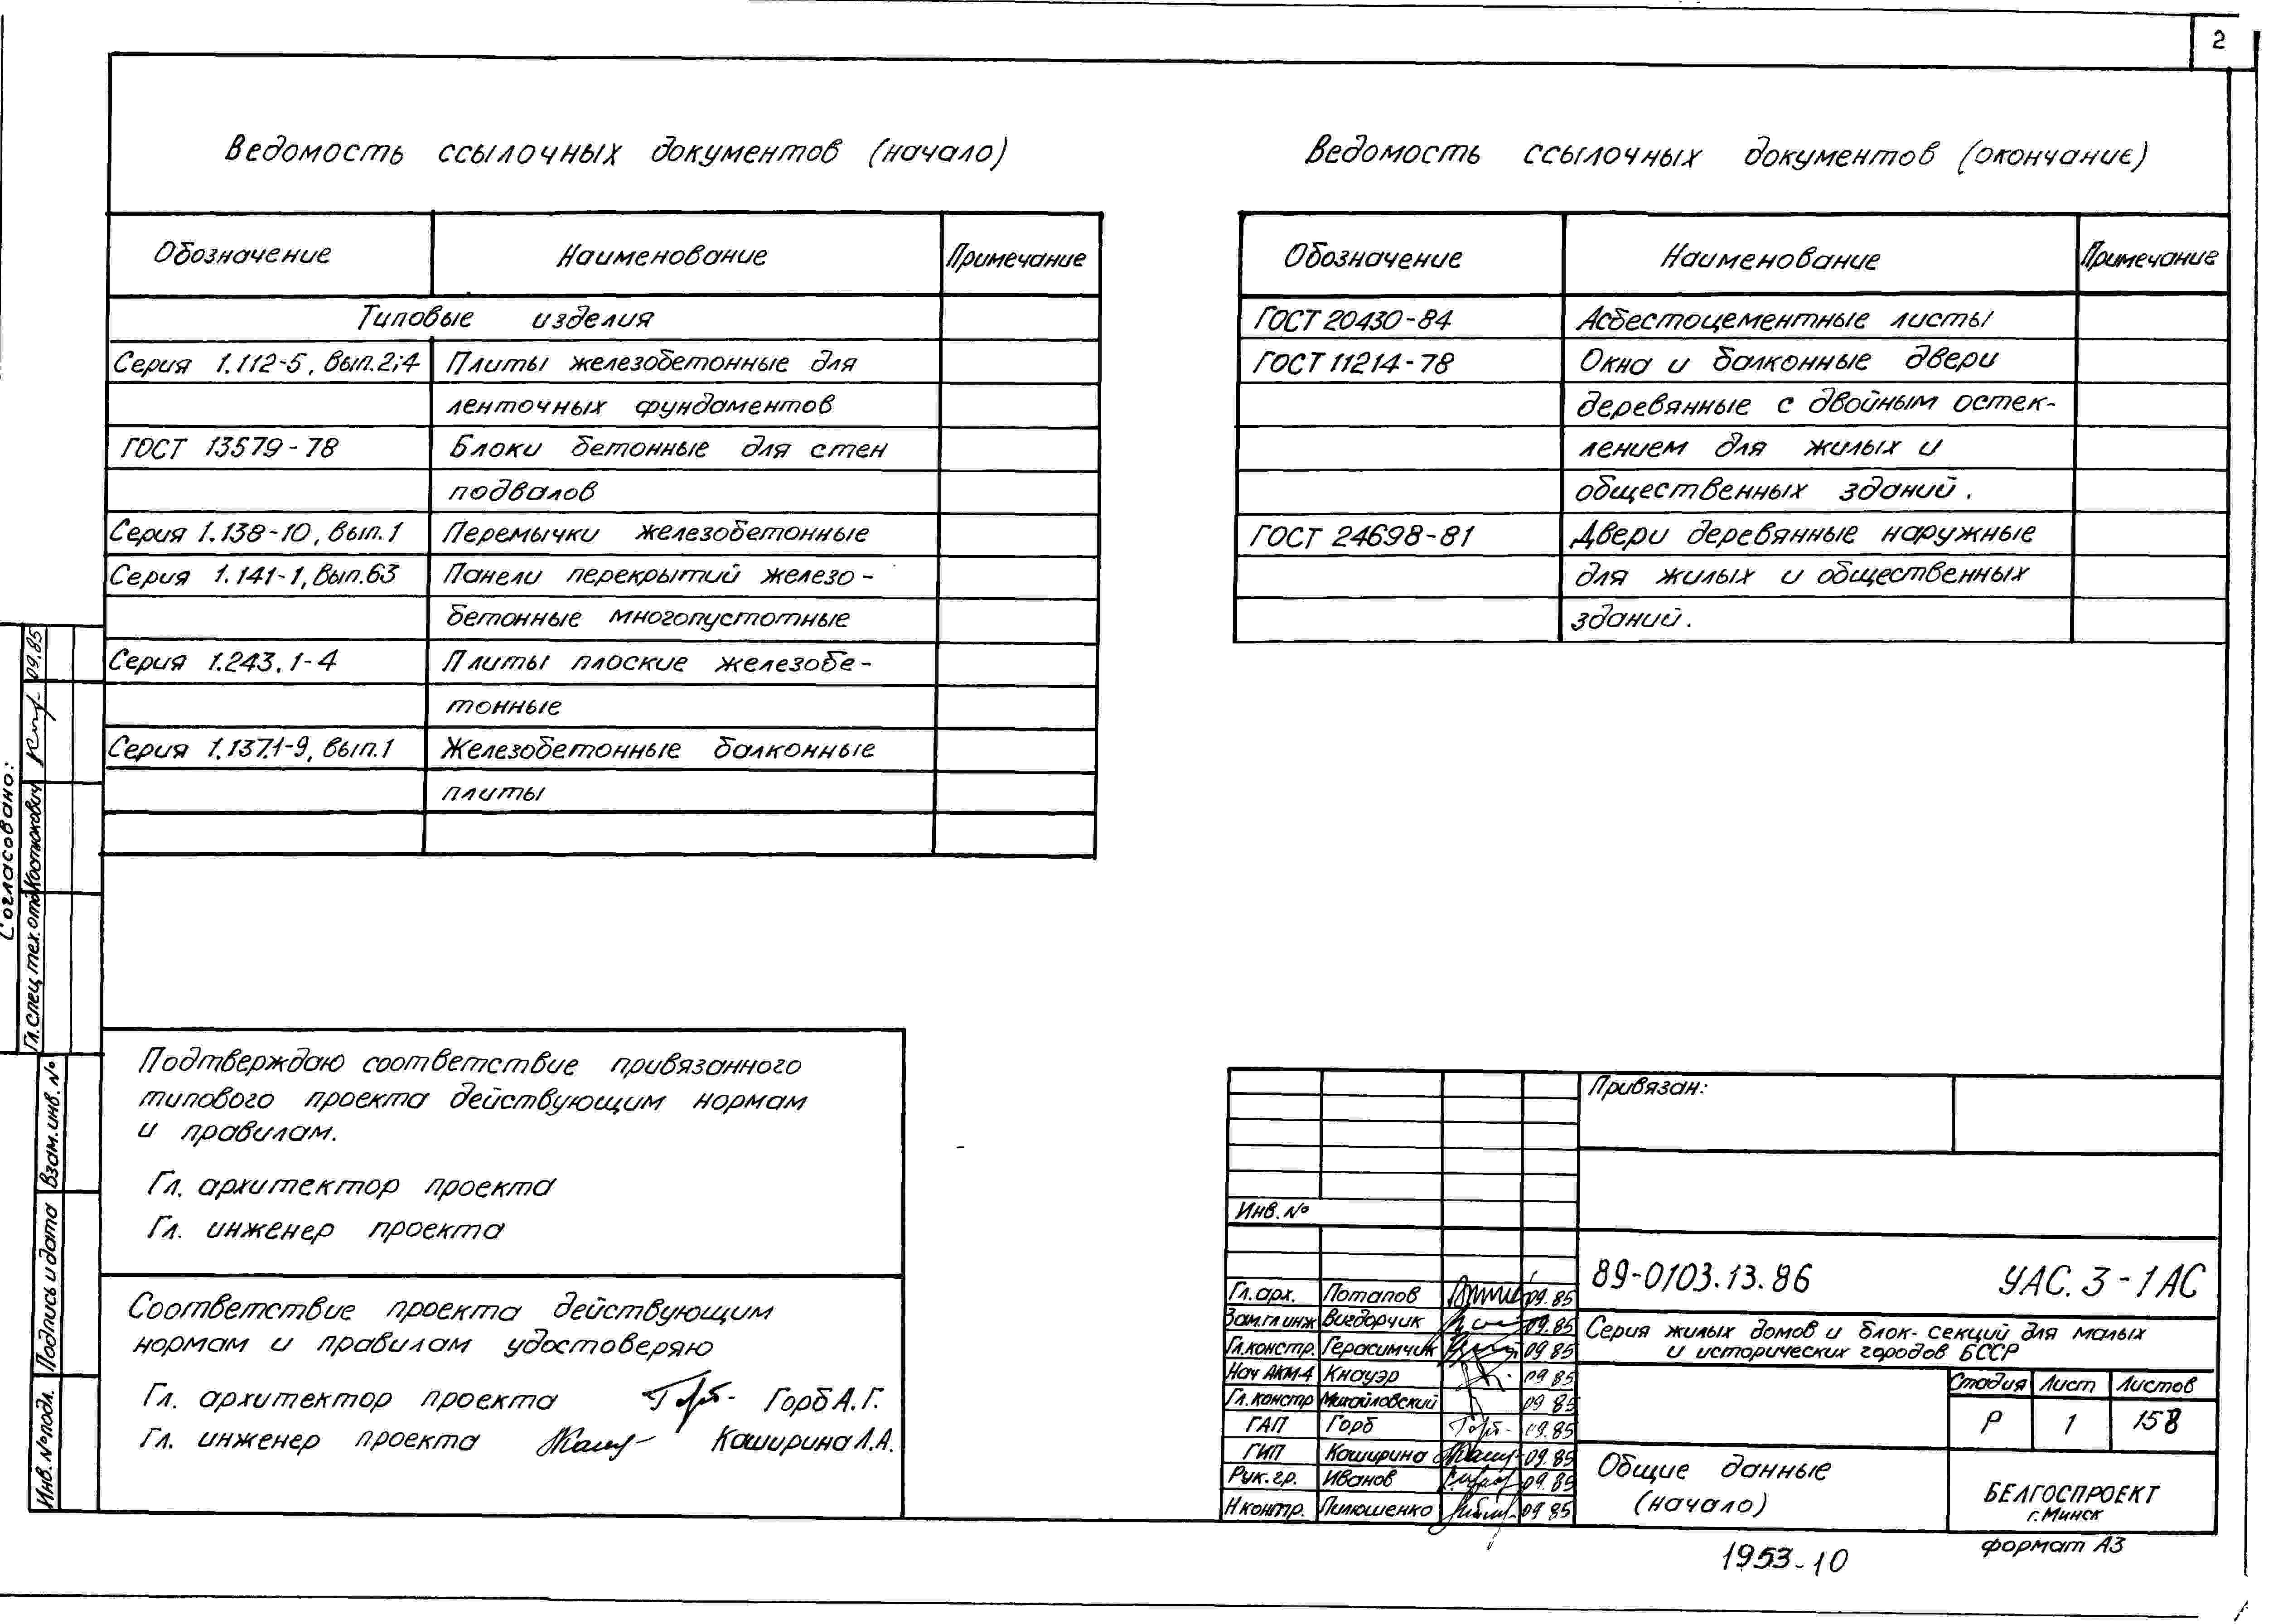 2
Ведомость ссылочных документов (начало)
Обозначение Наименование Примечание
Типовые изделия
Серия 1.112-5, вып.2;4 Плиты железобетонные для
ленточных фундаментов
ГОСТ 13579-78 Блоки бетонные для стен
подвалов
Серия 1.138-10, вып.1 Перемычки железобетонные
Серия 1.141-1, вып.63 Панели перекрытий железо-
бетонные многопустотные
Серия 1.243.1-4 Плиты плоские железобе-
тонные
Серия 1.137.1-9, вып.1 Железобетонные балконные
плиты
Ведомость ссылочных документов (окончание)
Обозначение Наименование Примечание
ГОСТ 20430-84 Асбестоцементные листы
ГОСТ 11214-78 Окна и балконные двери
деревянные с двойным остек-
лением для жилых и
общественных зданий.
ГОСТ 24698-81 Двери деревянные наружные
для жилых и общественных
зданий.
Согласовано:
Гл. спец. тех. отд. Костюкович 09.85
Взам. инв. №
Подпись и дата
Инв. № подл.
Подтверждаю соответствие привязанного
типового проекта действующим нормам
и правилам.
Гл. архитектор проекта
Гл. инженер проекта
Соответствие проекта действующим
нормам и правилам удостоверяю
Гл. архитектор проекта Горб А.Г.
Гл. инженер проекта Каширина Л.А.
Привязан:
Инв. №
89-0103.13.86 УАС.3-1АС
Гл. арх. Потапов 09.85
Зам. гл инж Вигдорчик 09.85
Гл. констр. Герасимчик 09 85
Нач АКМ-4 Кнауэр 09 85
Гл. констр Михайловский 09 85
ГАП Горб 09.85
ГИП Каширина 09.85
Рук. гр. Иванов 09.85
Н контр. Пилюшенко 09 85
Серия жилых домов и блок-секций для малых
и исторических городов БССР
Стадия Лист Листов
Р 1 158
Общие данные
(начало)
БЕЛГОСПРОЕКТ
г. Минск
формат А3
1953-10